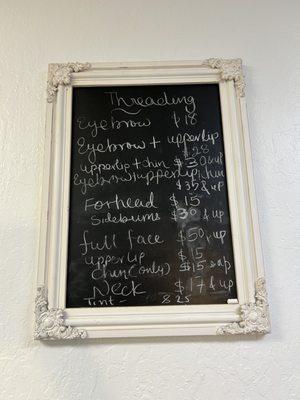 Threading
Eyebrow $18
Eyebrow + upperlip
$28
upperlip + chin $30 & up
Eyebrow + upperlip, chin
$35 & up
Forhead $15
Sideburns $30 & up
full face $50 & up
upper Lip $15
Chin (only) $15 & up
Neck $17 & up
Tint - $25